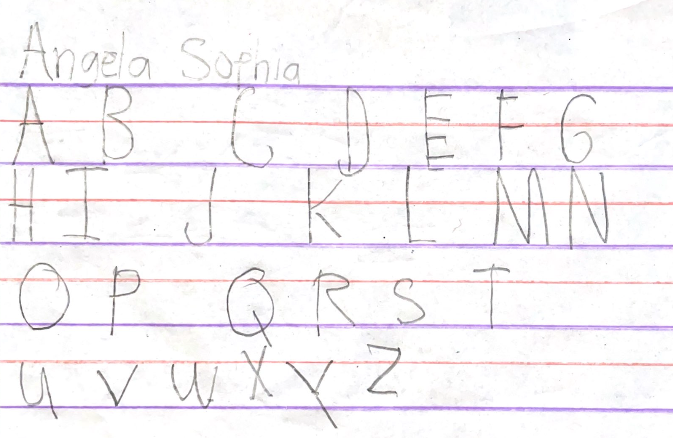 Angela Sophia
A B C D E F G
H I J K L M N
O P Q R S T
u v w X Y Z